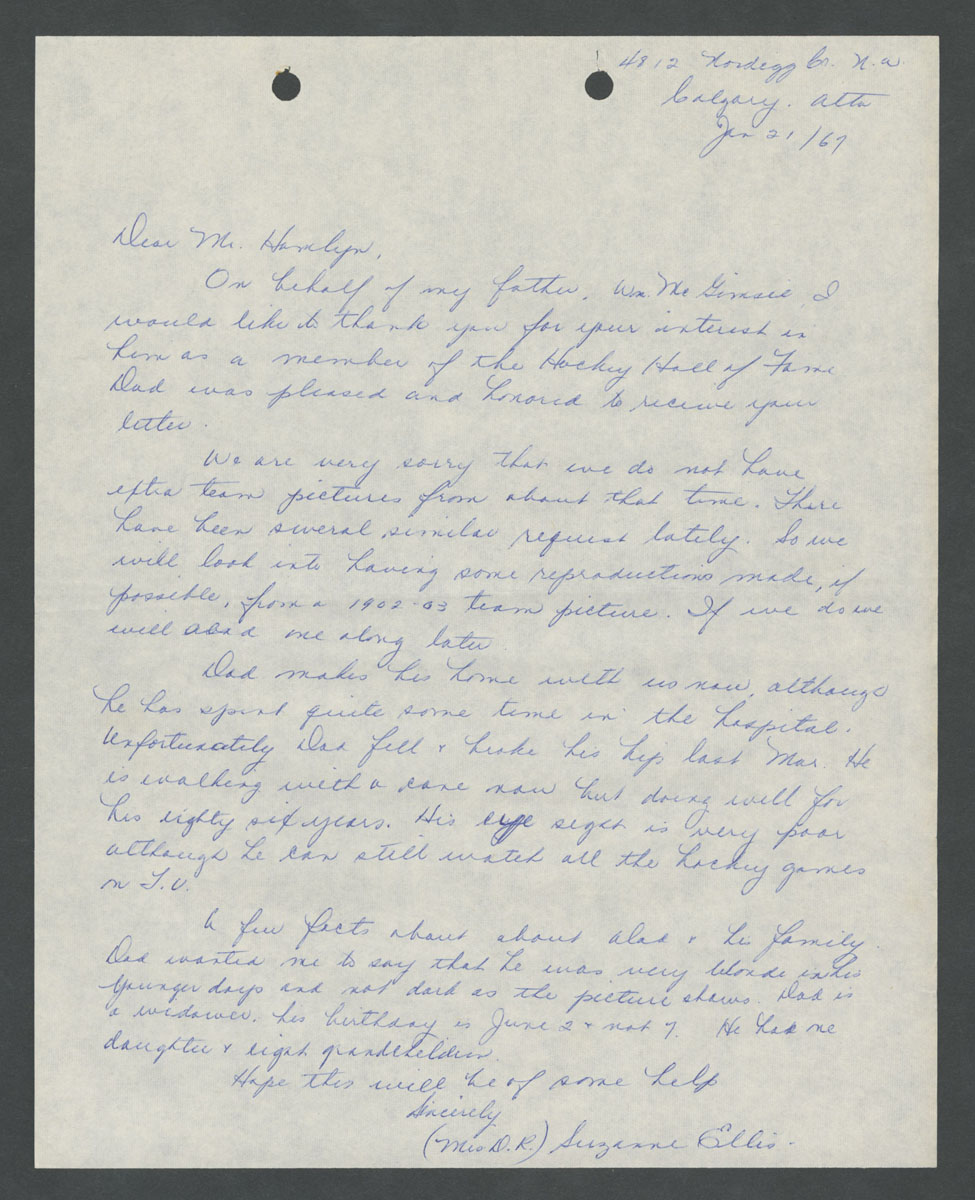 4812 Nordegg Cr. N.W.
Calgary. Alta
Jan 21/67
Dear Mr. Hamlyn,
On behalf of my father, Wm. McGimsie, I
would like to thank you for your interest in
him as a member of the Hockey Hall of Fame
Dad was pleased and honored to receive your
letter.
We are very sorry that we do not have
extra team pictures from about that time. There
have been several similar request lately. So we
will look into having some reproductions made, if
possible, from a 1902-03 team picture. If we do we
will send one along later
Dad makes his home with us now, although
he has spent quite some time in the hospital.
Unfortunately Dad fell & broke his hip last Mar. He
is walking with a cane now but doing well for
his eighty six years. His eye sight is very poor
although he can still watch all the hockey games
on T.V.
A few facts about about Dad & his family
Dad wanted me to say that he was very blonde in his
younger days and not dark as the picture shows. Dad is
a widower. his birthday is June 2 & not 7. He has me
daughter & eight grandchildren.
Hope this will be of some help
Sincerely
(Mrs D.R.) Suzanne Ellis.